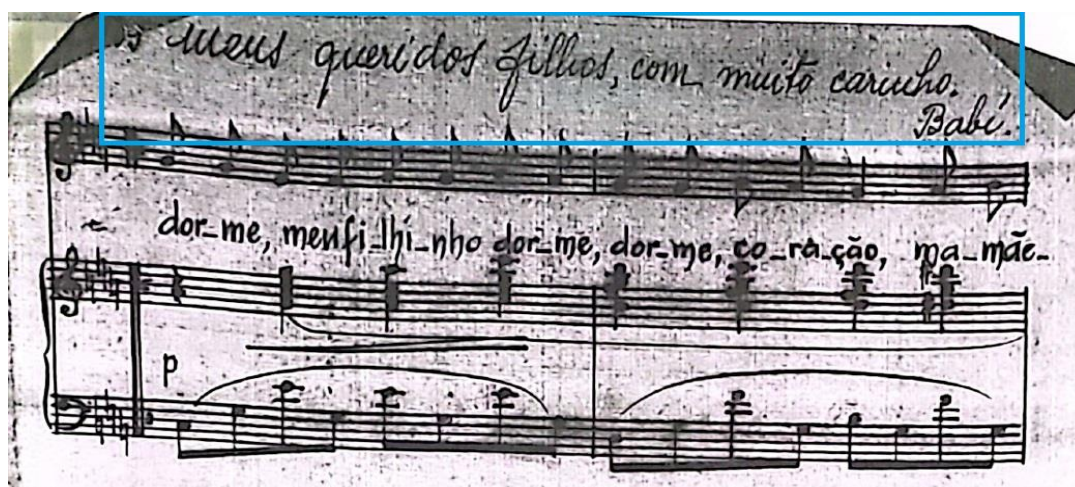 s meus queridos filhos, com muito carinho.
Babi.
dor-me, meu fi-lhi-nho dor-me, dor-me, co-ra-ção, ma-mãe-
p